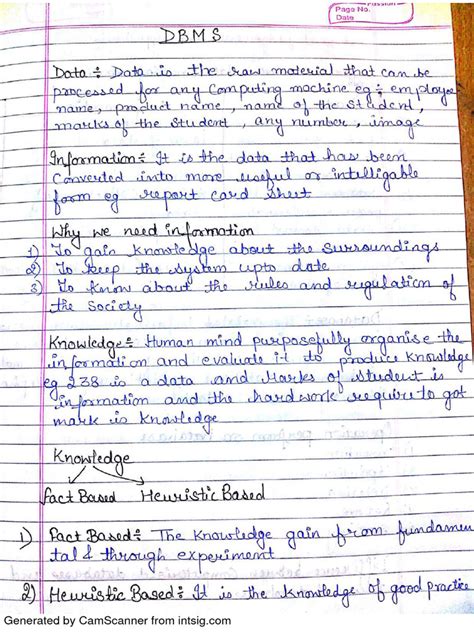 Passion
Page No.
Date
DBMS
Data ÷ Data is the raw material that can be
processed for any computing machine eg ÷ employee
name, product name, name of the student,
marks of the student, any number, image
Information ÷ It is the data that has been
Converted into more useful or intelligable
form eg report card sheet
Why we need information
1) To gain knowledge about the surroundings
2) To keep the system upto date
3) To know about the rules and regulation of
the Society
Knowledge ÷ Human mind purposefully organise the
information and evaluate it to produce knowledge
eg 238 is a data and Marks of student is
information and the hardwork require to got
mark is knowledge
Knowledge
Fact Based Heuristic Based
1) Fact Based ÷ The Knowledge gain from fundamen
tal & through experiment
2) Heuristic Based ÷ It is the knowledge of good practice
Generated by CamScanner from intsig.com